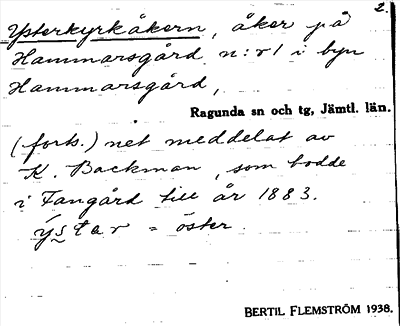 2.
Ysterkyrkåkern, åker på
Hammarsgård n:r 1 i byn
Hammarsgård,
Ragunda sn och tg, Jämtl. län.
(forts.) net meddelat av
K. Backman, som bodde
i Fangård till år 1883.
ýstar = öster.
BERTIL FLEMSTRÖM 1938.